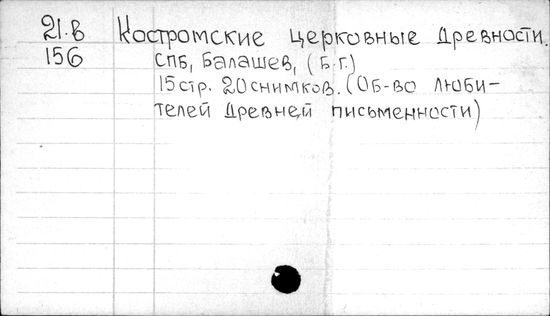 21.в Костромские церковные древности.
156 СПБ, Балашев, (Б.Г.)
15 стр. 20 снимков. (Об-во люби-
телей древней письменности)